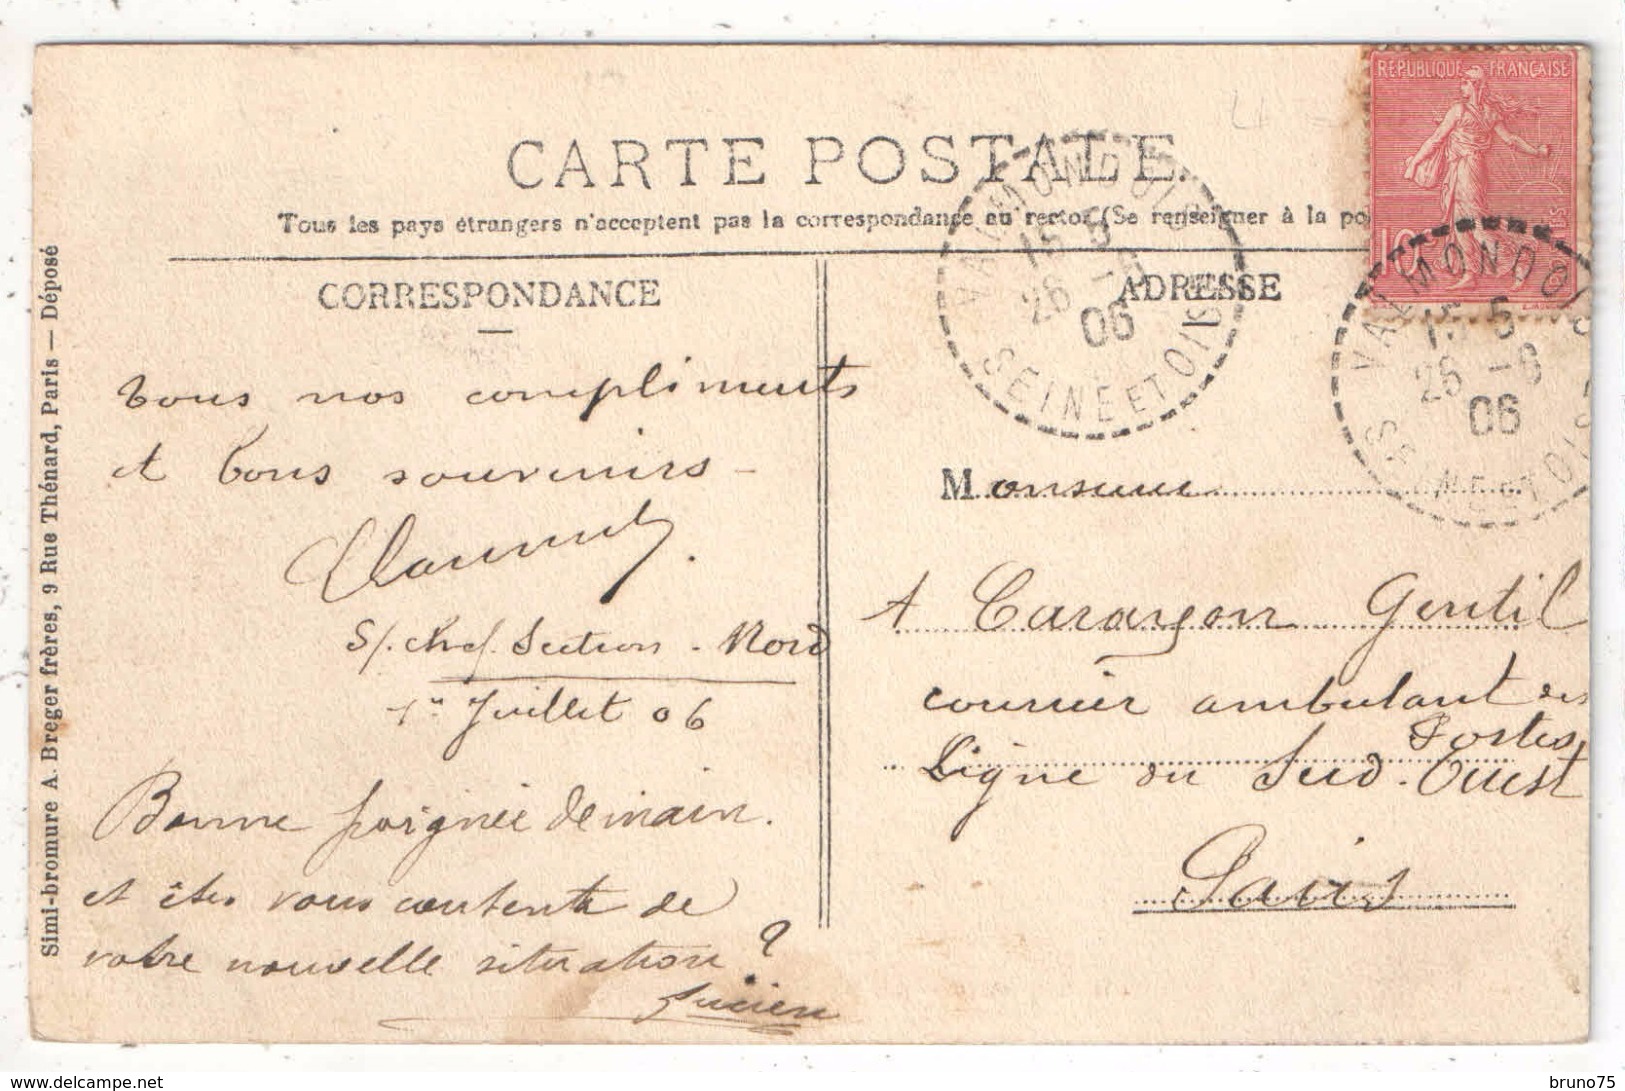 RÉPUBLIQUE FRANÇAISE
10
CARTE POSTALE
Tous les pays étrangers n'acceptent pas la correspondance au recto. (Se renseigner à la po
CORRESPONDANCE
ADRESSE
VALMONDOIS
15 5
26 -6
06
SEINE ET OISE
VALMONDOIS
15 5
26 -6
06
SEINE ET OISE
Tous nos compliments
et bons souvenirs -
S/. Chef Section - Nord
1er Juillet 06
Bonne poignée de main.
et êtes vous contente de
votre nouvelle situation ?
Lucien
Monsieur
A Caraygon Gentil
courrier ambulant des
Postes
Ligne du Sud-Ouest
Paris
Simi-bromure A. Breger frères, 9 Rue Thénard, Paris — Déposé
delcampe.net
bruno75